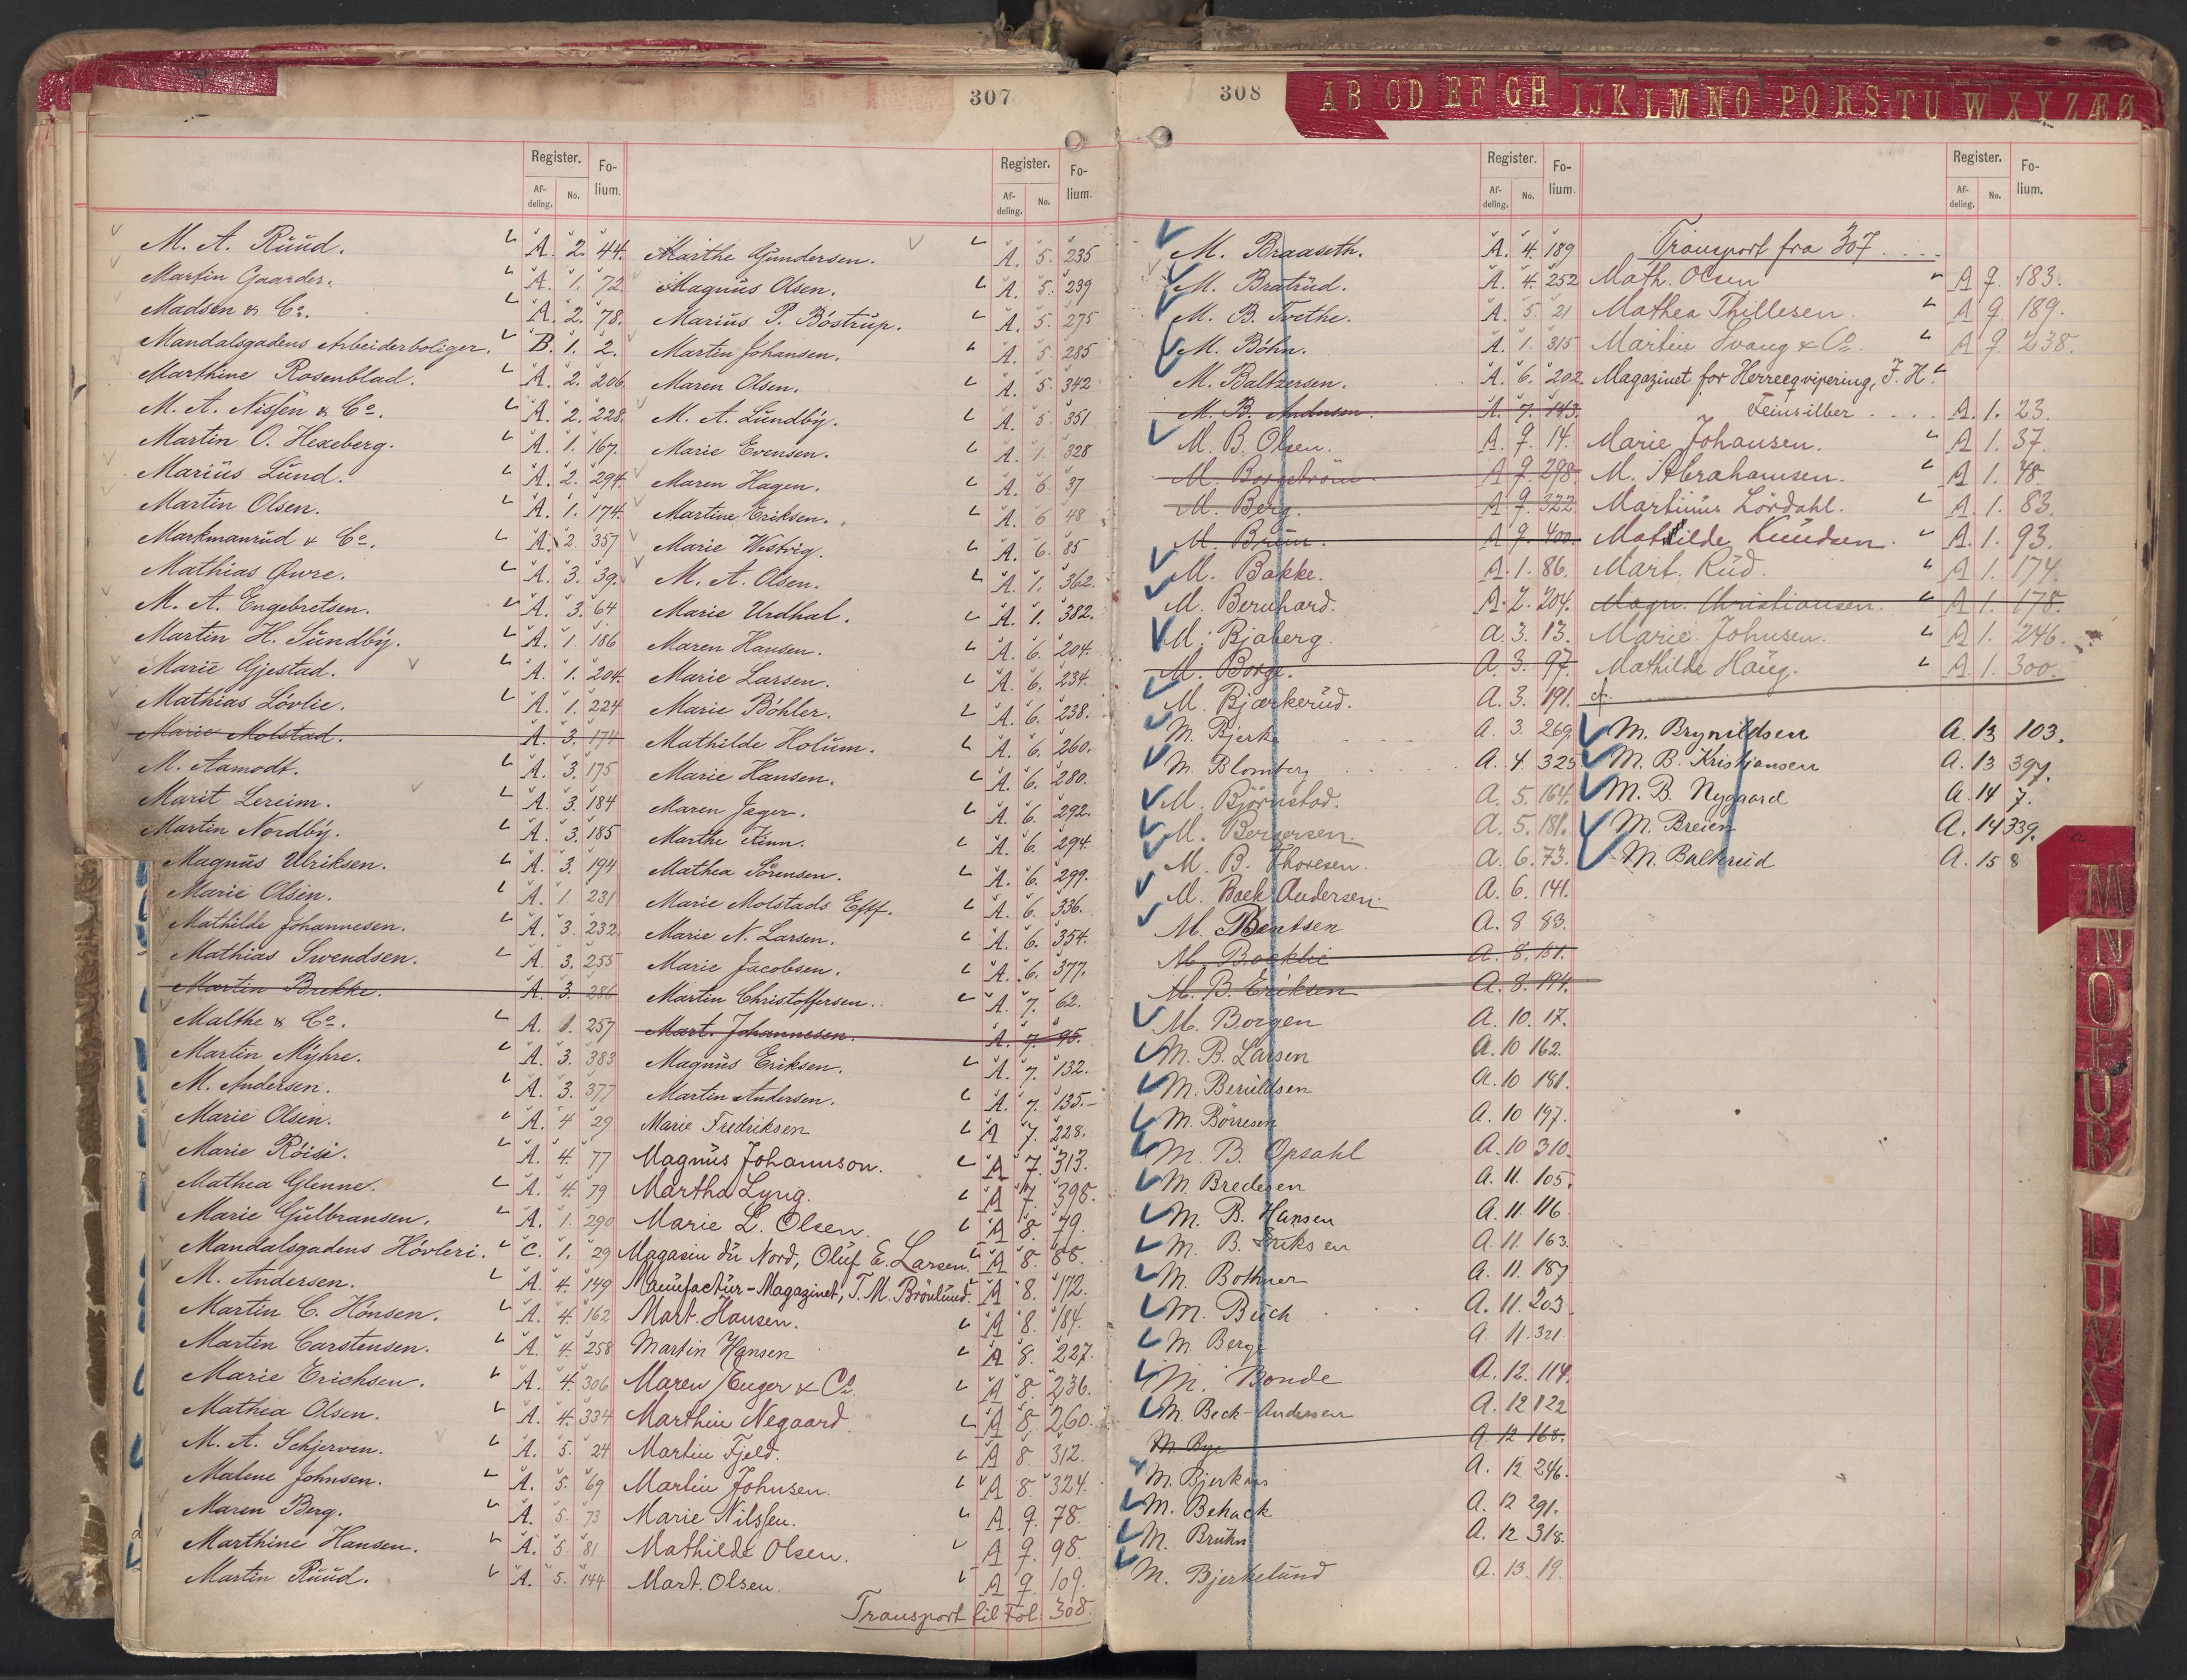 307
Register. Fo-
lium.
Af-
deling. No.
M. A. Ruud. A. 2. 44.
Martin Gaarder. A. 1. 72
Madsen & Co. A. 2. 78.
Mandalsgadens Arbeiderboliger. B. 1. 2.
Marthine Rosenblad. A. 2. 206.
M. A. Nissen & Co. A. 2. 228.
Martin O. Hexeberg. A. 1. 167.
Marius Lund. A. 2. 294.
Martin Olsen. A. 1. 174.
Markmanrud & Co. A. 2. 357
Mathias Qwre. A. 3. 39.
M. A. Engebretsen. A. 3. 64
Martin H. Sundby. A. 1. 186
Marie Gjestad. A. 1. 204.
Mathias Lövlie. A. 1. 224
Marie Molstad. A. 3. 174
M. Aamodt. A. 3. 175
Marit Lereim. A. 3. 184
Martin Nordby. A. 3. 185
Magnus Ulriksen. A. 3. 194
Marie Olsen. A. 1. 231
Mathilde Johannesen. A. 3. 232
Mathias Swendsen. A. 3. 255
Martin Brekke. A. 3. 286
Malthe & Co. A. 1. 257
Martin Myhre. A. 3. 383
M. Andersen. A. 3. 377
Marie Olsen. A. 4 29
Marie Röise. A. 4. 77
Mathea Glenne. A. 4. 79
Marie Gulbransen. A. 1. 290
Mandalsgadens Hövleri. C. 1. 29
M. Andersen. A. 4. 149
Martin C. Hönsen. A. 4. 162
Martin Carstensen. A. 4. 258
Marie Erichsen. A. 4. 306
Mathea Olsen. A. 4. 334
M. A. Schjerven. A. 5. 24
Malene Johnsen. A. 5. 69
Maren Berg. A. 5. 73
Marthine Hansen. A. 5. 81
Martin Ruud. A. 5. 144
Register. Fo-
lium.
Af-
deling. No.
Marthe Gundersen. A. 5. 235
Magnus Olsen. A. 5. 239
Marius P. Böstrup. A. 5. 275
Martin Johansen. A. 5. 285
Maren Olsen. A. 5. 342
M. A. Lundby. A. 5. 351
Marie Evensen. A. 1. 328
Maren Hagen. A. 6. 37
Martine Eriksen. A. 6 48
Marie Westvig. A. 6. 85
M. A. Olsen. A. 1. 362.
Marie Urdhal. A. 1. 382.
Maren Hansen. A. 6. 204.
Marie Larsen. A. 6. 234.
Marie Böhler. A. 6. 238.
Mathilde Holum. A. 6. 260.
Marie Hansen. A. 6. 280.
Maren Jager. A. 6. 292.
Marthe Finn. A. 6. 294
Mathea Sörensen. A. 6. 299.
Marie Molstads Eftf. A. 6. 336.
Marie N. Larsen. A. 6. 354.
Marie Jacobsen. A. 6. 377.
Martin Christoffersen. A. 7. 62.
Mart. Johannesen. A. 7. 95.
Magnus Eriksen. A. 7. 132.
Martin Andersen. A. 7. 135.
Marie Fredriksen A 7. 228.
Magnus Johannson. A 7. 313.
Martha Lyng. A 7. 398.
Marie L. Olsen. A 8. 79.
Magasin du Nord, Oluf E. Larsen. A 8. 88.
Manufactur-Magazinet, T. M. Brönlund. A 8. 172.
Mart. Hansen. A 8. 184.
Martin Hansen A 8. 227.
Maren Enger & Co. A 8. 236.
Marthin Negaard A 8. 260.
Martin Fjeld. A 8. 312.
Martin Johnsen. A 8. 324.
Marie Nilssen. A. 9. 78.
Mathilde Olsen. A 9. 98.
Mart. Olsen. A 9. 109.
Transport til Fol. 308.
308
AB CD EF GH IJK LM NO PQ RS TU W XYZÆØ
Register. Fo-
lium.
Af-
deling. No.
M. Braaseth. A. 4. 189
M. Bratrud. A. 4. 252
M. B. Tvethe. A. 5. 21
M. Böhn. A. 1. 315
M. Baltzersen. A. 6. 202.
M. B. Andersen. A. 7. 143.
M. B. Olsen. A. 9. 14.
M. Borgström. A 9. 298.
M. Berg. A 9. 322
M. Bruun. A 9. 400.
M. Bakke. A. 1. 86.
M. Bernhard. A. 2. 204.
M. Bjaberg. A. 3. 13.
M. Borge. A. 3. 97.
M. Bjærkerud. A. 3. 191.
M. Bjerke A. 3. 269
M. Blomberg A. 4. 325
M. Björnstad. A. 5. 164.
M. Bergersen. A. 5. 181.
M. B. Thoresen. A. 6. 73.
M. Baek Andersen. A. 6. 141.
M. Bentsen A. 8 83.
M. Backlie A. 8. 151.
M. B. Eriksen A. 8. 194.
M. Borgen A. 10. 17.
M. B. Larsen A. 10 162.
M. Beruldsen A. 10 181.
M. Börresen A. 10 197.
M. B. Opsahl A. 10 310.
M. Bredesen A. 11. 105.
M. B. Hansen A. 11. 116
M. B. Eriksen A. 11. 163.
M. Bothner A. 11. 187
M. Buch A. 11. 203.
M. Berge A. 11. 321
M. Bonde A. 12. 114.
M. Beck-Andersen A. 12 122
M. Bye A 12 168.
M. Bjerknes A. 12 246.
M. Behack A. 12 291.
M. Bruhn A. 12 318.
M. Bjerkelund A. 13. 19.
Register. Fo-
lium.
Af-
deling. No.
Transport fra 307
Math. Olsen A 9. 183.
Mathea Thillesen. A 9 189.
Martin Svang & Co. A 9. 238.
Magazinet for Herreeqvipering, F. H.
Feinsilber A. 1. 23.
Marie Johansen. A 1. 37.
M. Abrahamsen. A 1. 48.
Martinus Lördahl. A 1. 83.
Mathilde Knudsen. A. 1. 93.
Mart. Rud. A 1. 174.
Magn. Christiansen. A 1. 178.
Marie Johnsen. A 1. 246.
Mathilde Haug. A 1. 300.
M. Brynildsen A. 13 103.
M. B. Kristiansen A. 13 397.
M. B. Nygaard A. 14 7.
M. Breien A. 14 339.
M. Balkrud A. 15 8
M
N